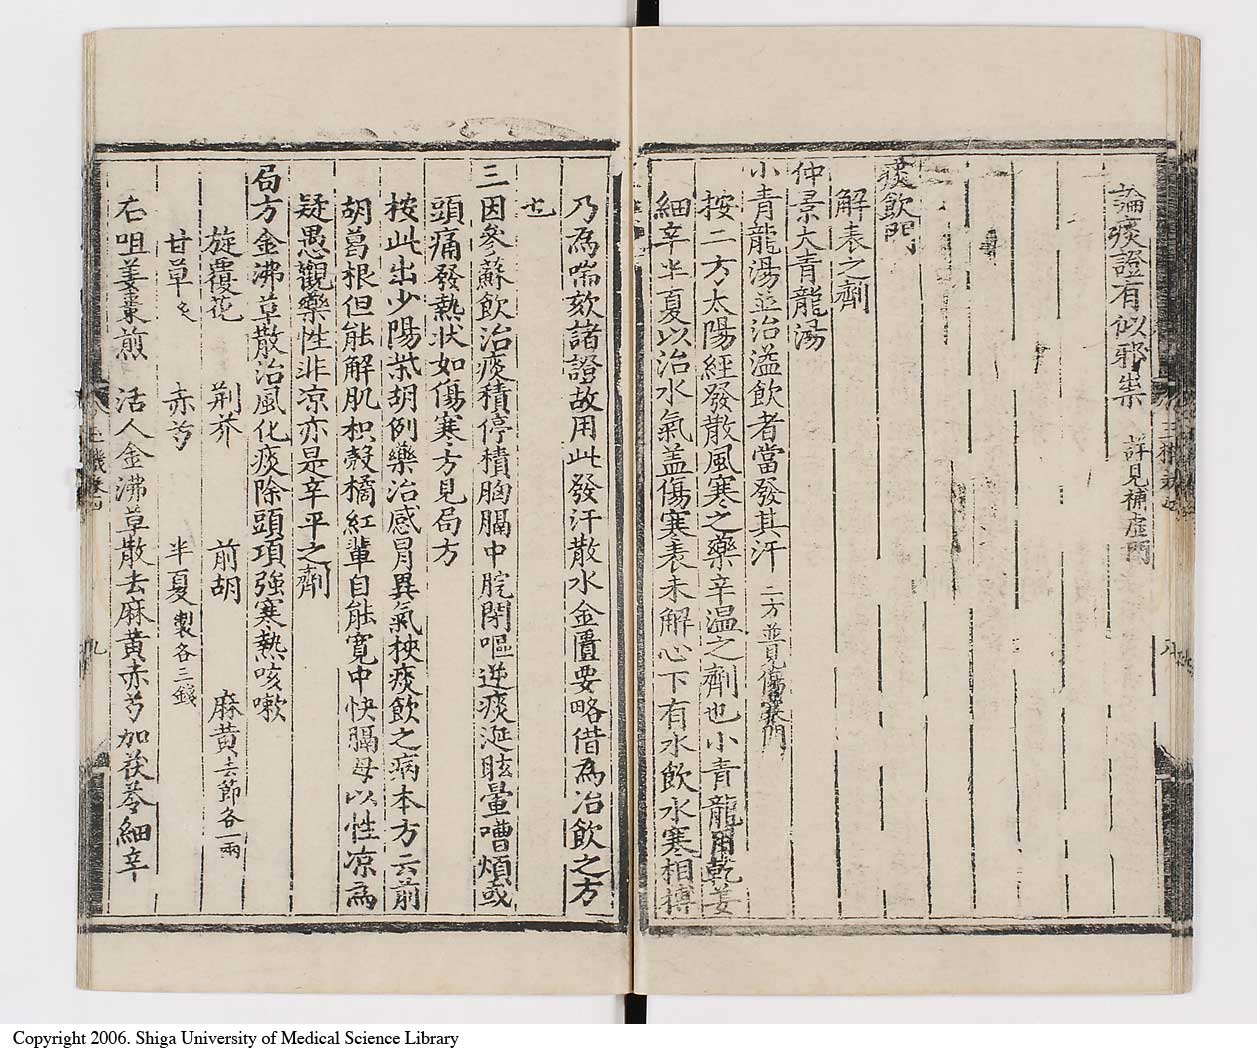 論痰證有似邪祟 詳見補虛門
痰飲門
解表之劑
仲景大青龍湯
小青龍湯並治溢飲者當發其汗 二方並見傷寒門
按二方太陽經發散風寒之藥辛温之劑也小青龍用乾姜
細辛半夏以治水氣盖傷寒表未解心下有水飲水寒相搏
乃為喘欬諸證故用此發汗散水金匱要略借為治飲之方
也
三因參蘇飲治痰積停積胸膈中脘閉嘔逆痰涎眩暈嘈煩或
頭痛發熱状如傷寒方見局方
按此出少陽柴胡例藥治感冒異氣挾痰飲之病本方云前
胡葛根但能解肌枳殼橘紅輩自能寛中快膈毋以性凉為
疑愚觀藥性非凉亦是辛平之劑
局方金沸草散治風化痰除頭項強寒熱咳嗽
旋覆花 荆芥 前胡 麻黄去節各一兩
甘草炙 赤芍 半夏製各三錢
右咀姜棗煎 活人金沸草散去麻黄赤芍加茯苓細辛
九
Copyright 2006. Shiga University of Medical Science Library